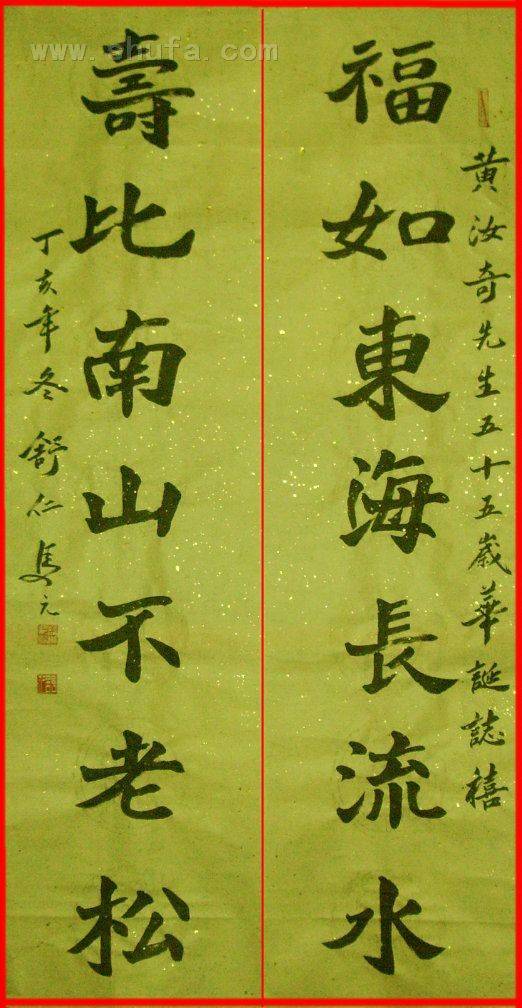 www.shufa.com
黄汝奇先生五十五歲華誕誌禧
福如東海長流水
壽比南山不老松
丁亥年冬舒仁元